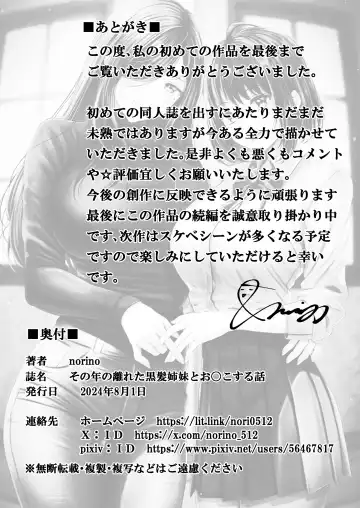 ■あとがき■
この度、私の初めての作品を最後まで
ご覧いただきありがとうございました。
初めての同人誌を出すにあたりまだまだ
未熟ではありますが今ある全力で描かせて
いただきました。是非よくも悪くもコメント
や☆評価宜しくお願いいたします。
今後の創作に反映できるように頑張ります
最後にこの作品の続編を誠意取り掛かり中
です、次作はスケベシーンが多くなる予定
ですので楽しみにしていただけると幸い
です。
■奥付■
著者 norino
誌名 その年の離れた黒髪姉妹とお〇こする話
発行日 2024年8月1日
連絡先 ホームページ https://lit.link/nori0512
X：ID https://x.com/norino_512
pixiv：ID https://www.pixiv.net/users/56467817
※無断転載・複製・複写などはご遠慮ください